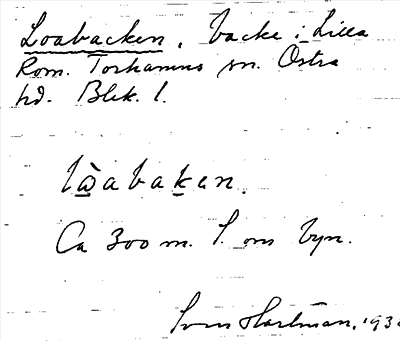 Loabacken, backe i Lilla
Rom. Torhamns sn. Östra
hd. Blek. l.
lòabaken.
Ca 300 m. S. om byn.
Sven Hartman, 193